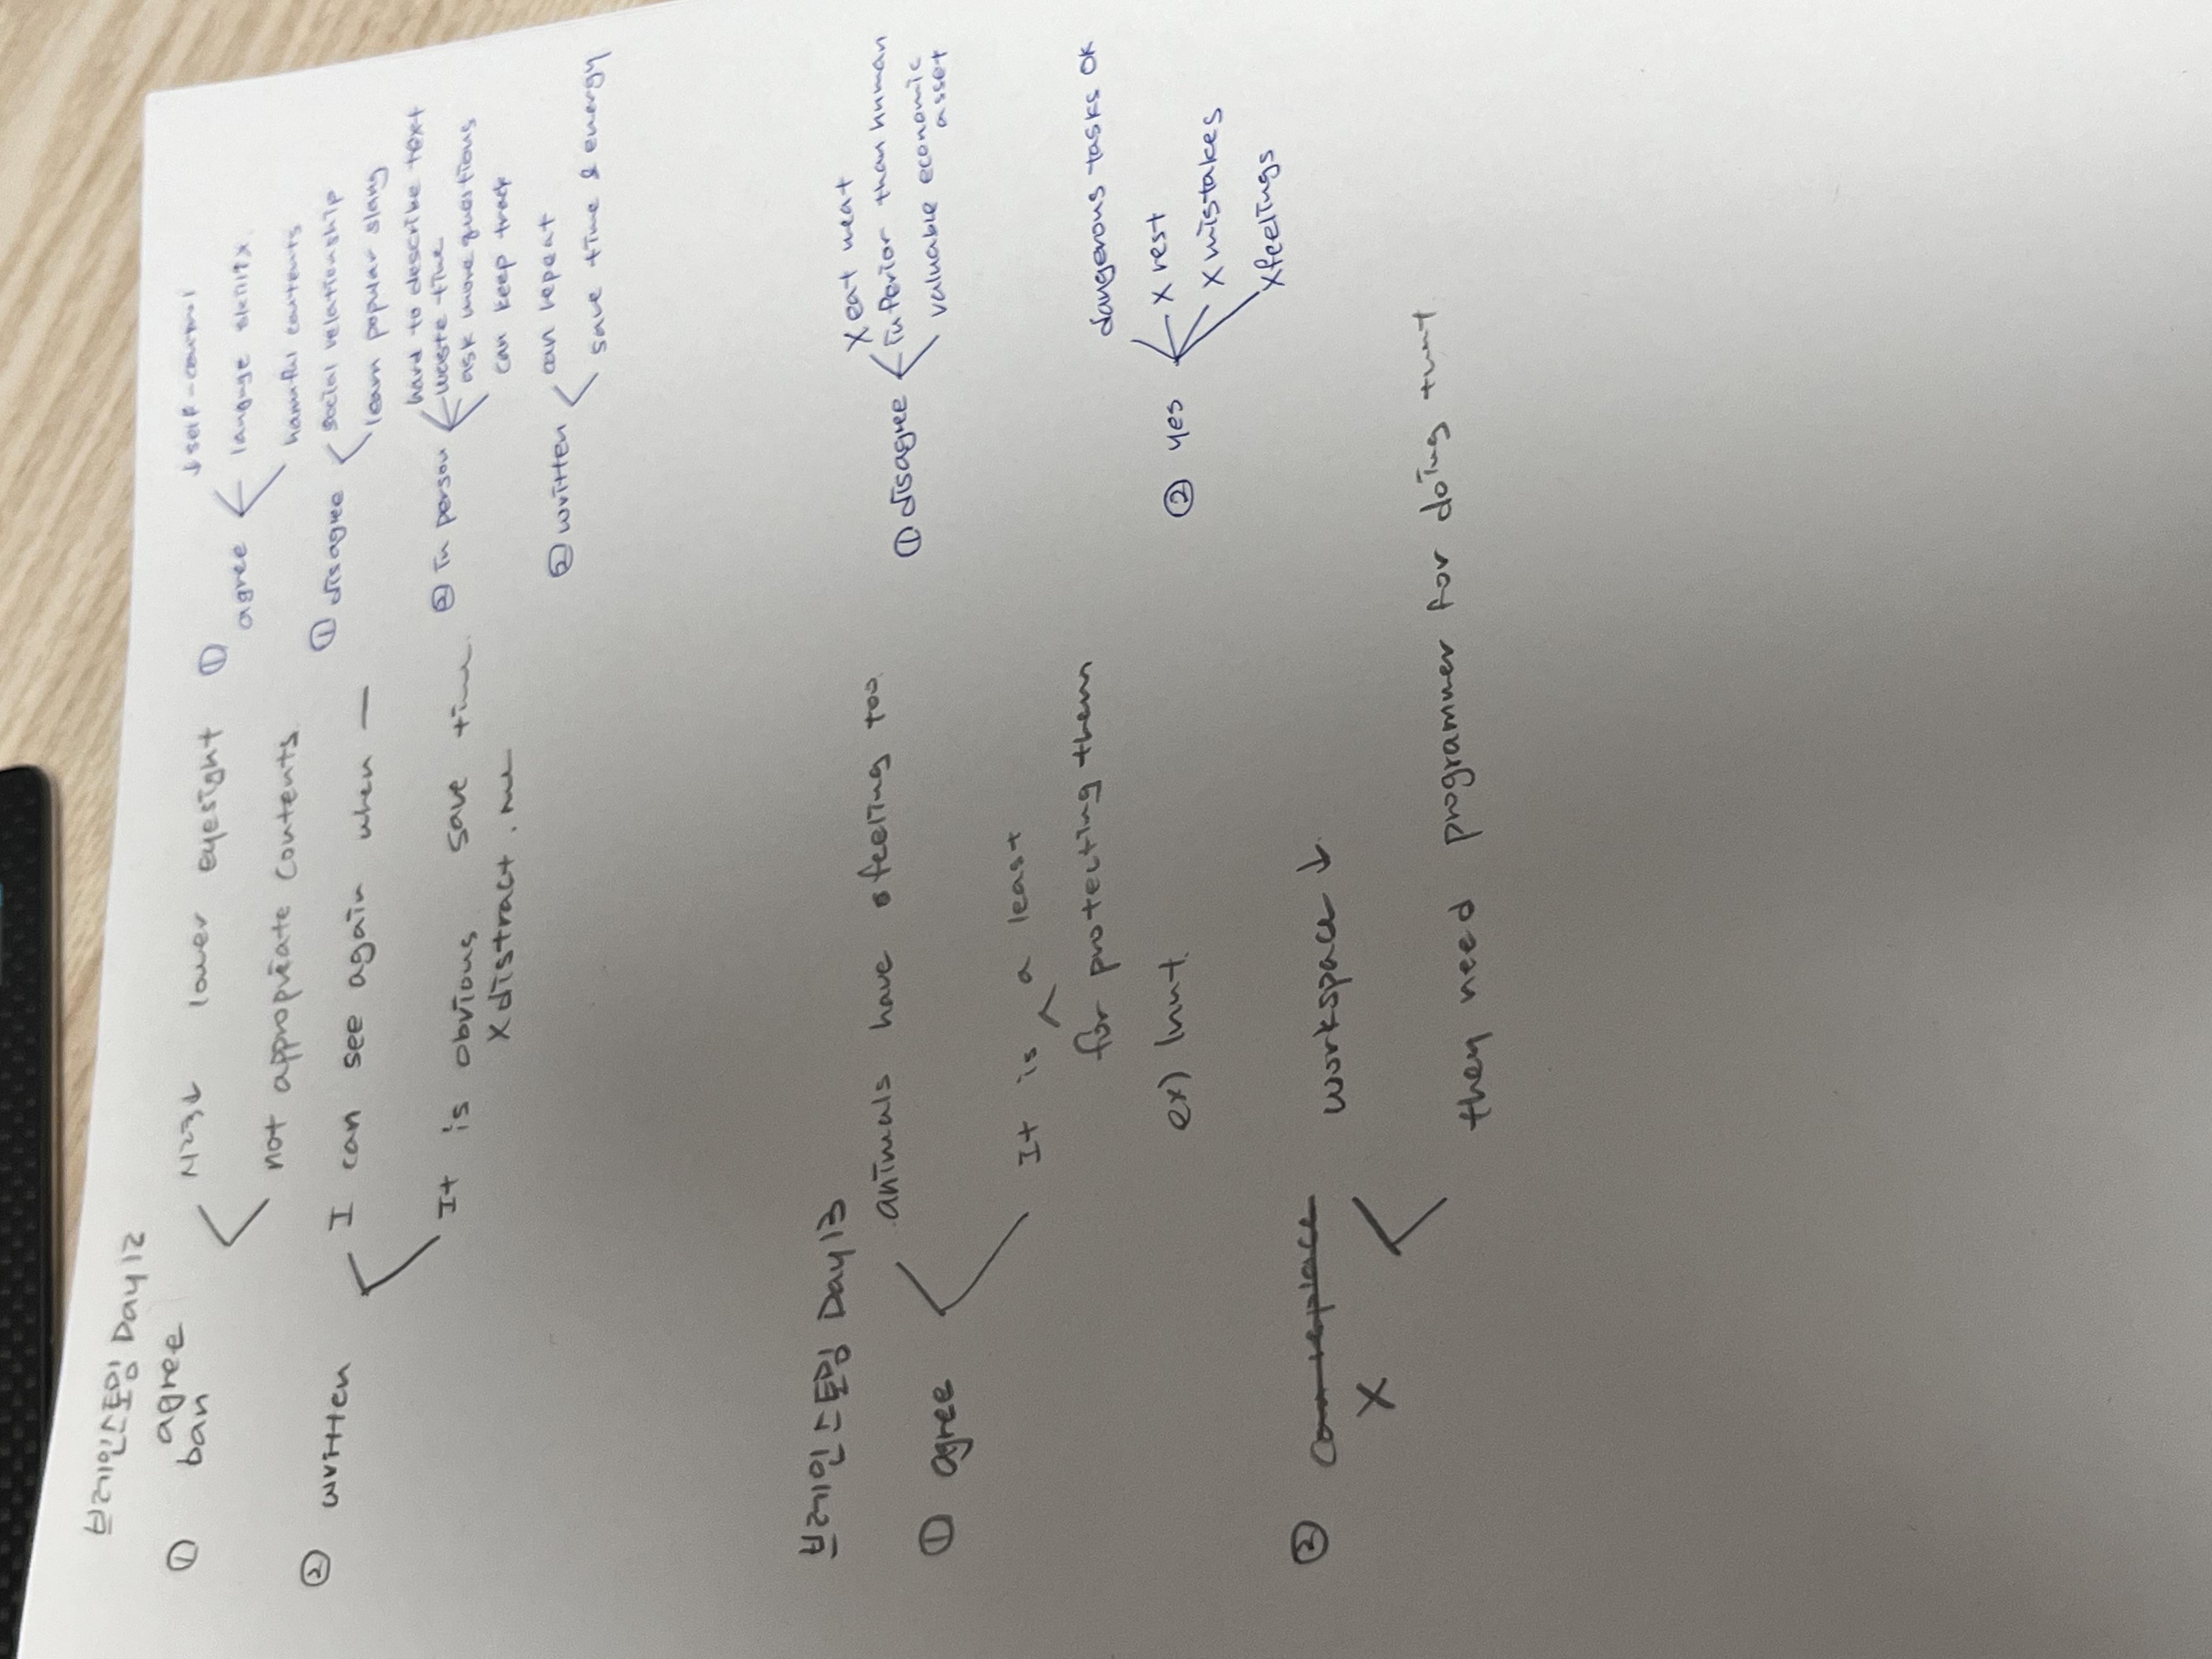 브레인스토밍 Day12
① agree
ban
시력↓ lower eyesight
not appropriate contents
② written
I can see again when —
It is obvious save time.
X distract.
① agree
↓self-control
language skill↓
harmful contents
① disagree
social relationship
learn popular slang
② in person
hard to describe text
waste time
ask more questions
can keep track
② written
can repeat
save time & energy
브레인스토밍 Day13
① agree
animals have feeling too.
It is a least
for protecting them
ex) hunt.
② can replace
X
workspace ↓
then need programmer for doing that
① disagree
X eat meat
inferior than human
valuable economic
asset
② yes
dangerous tasks OK
X rest
X mistakes
X feelings